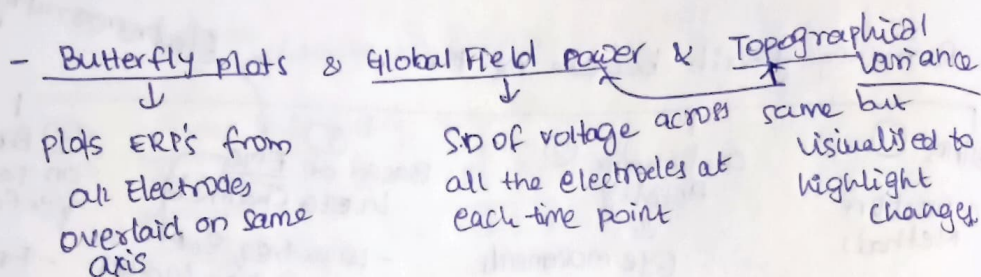 - Butterfly plots & Global Field power & Topographical variance
↓ ↓
plots ERP's from
all Electrodes
overlaid on same
axis
SD of voltage across
all the electrodes at
each time point
same but
visiualised to
highlight
changes